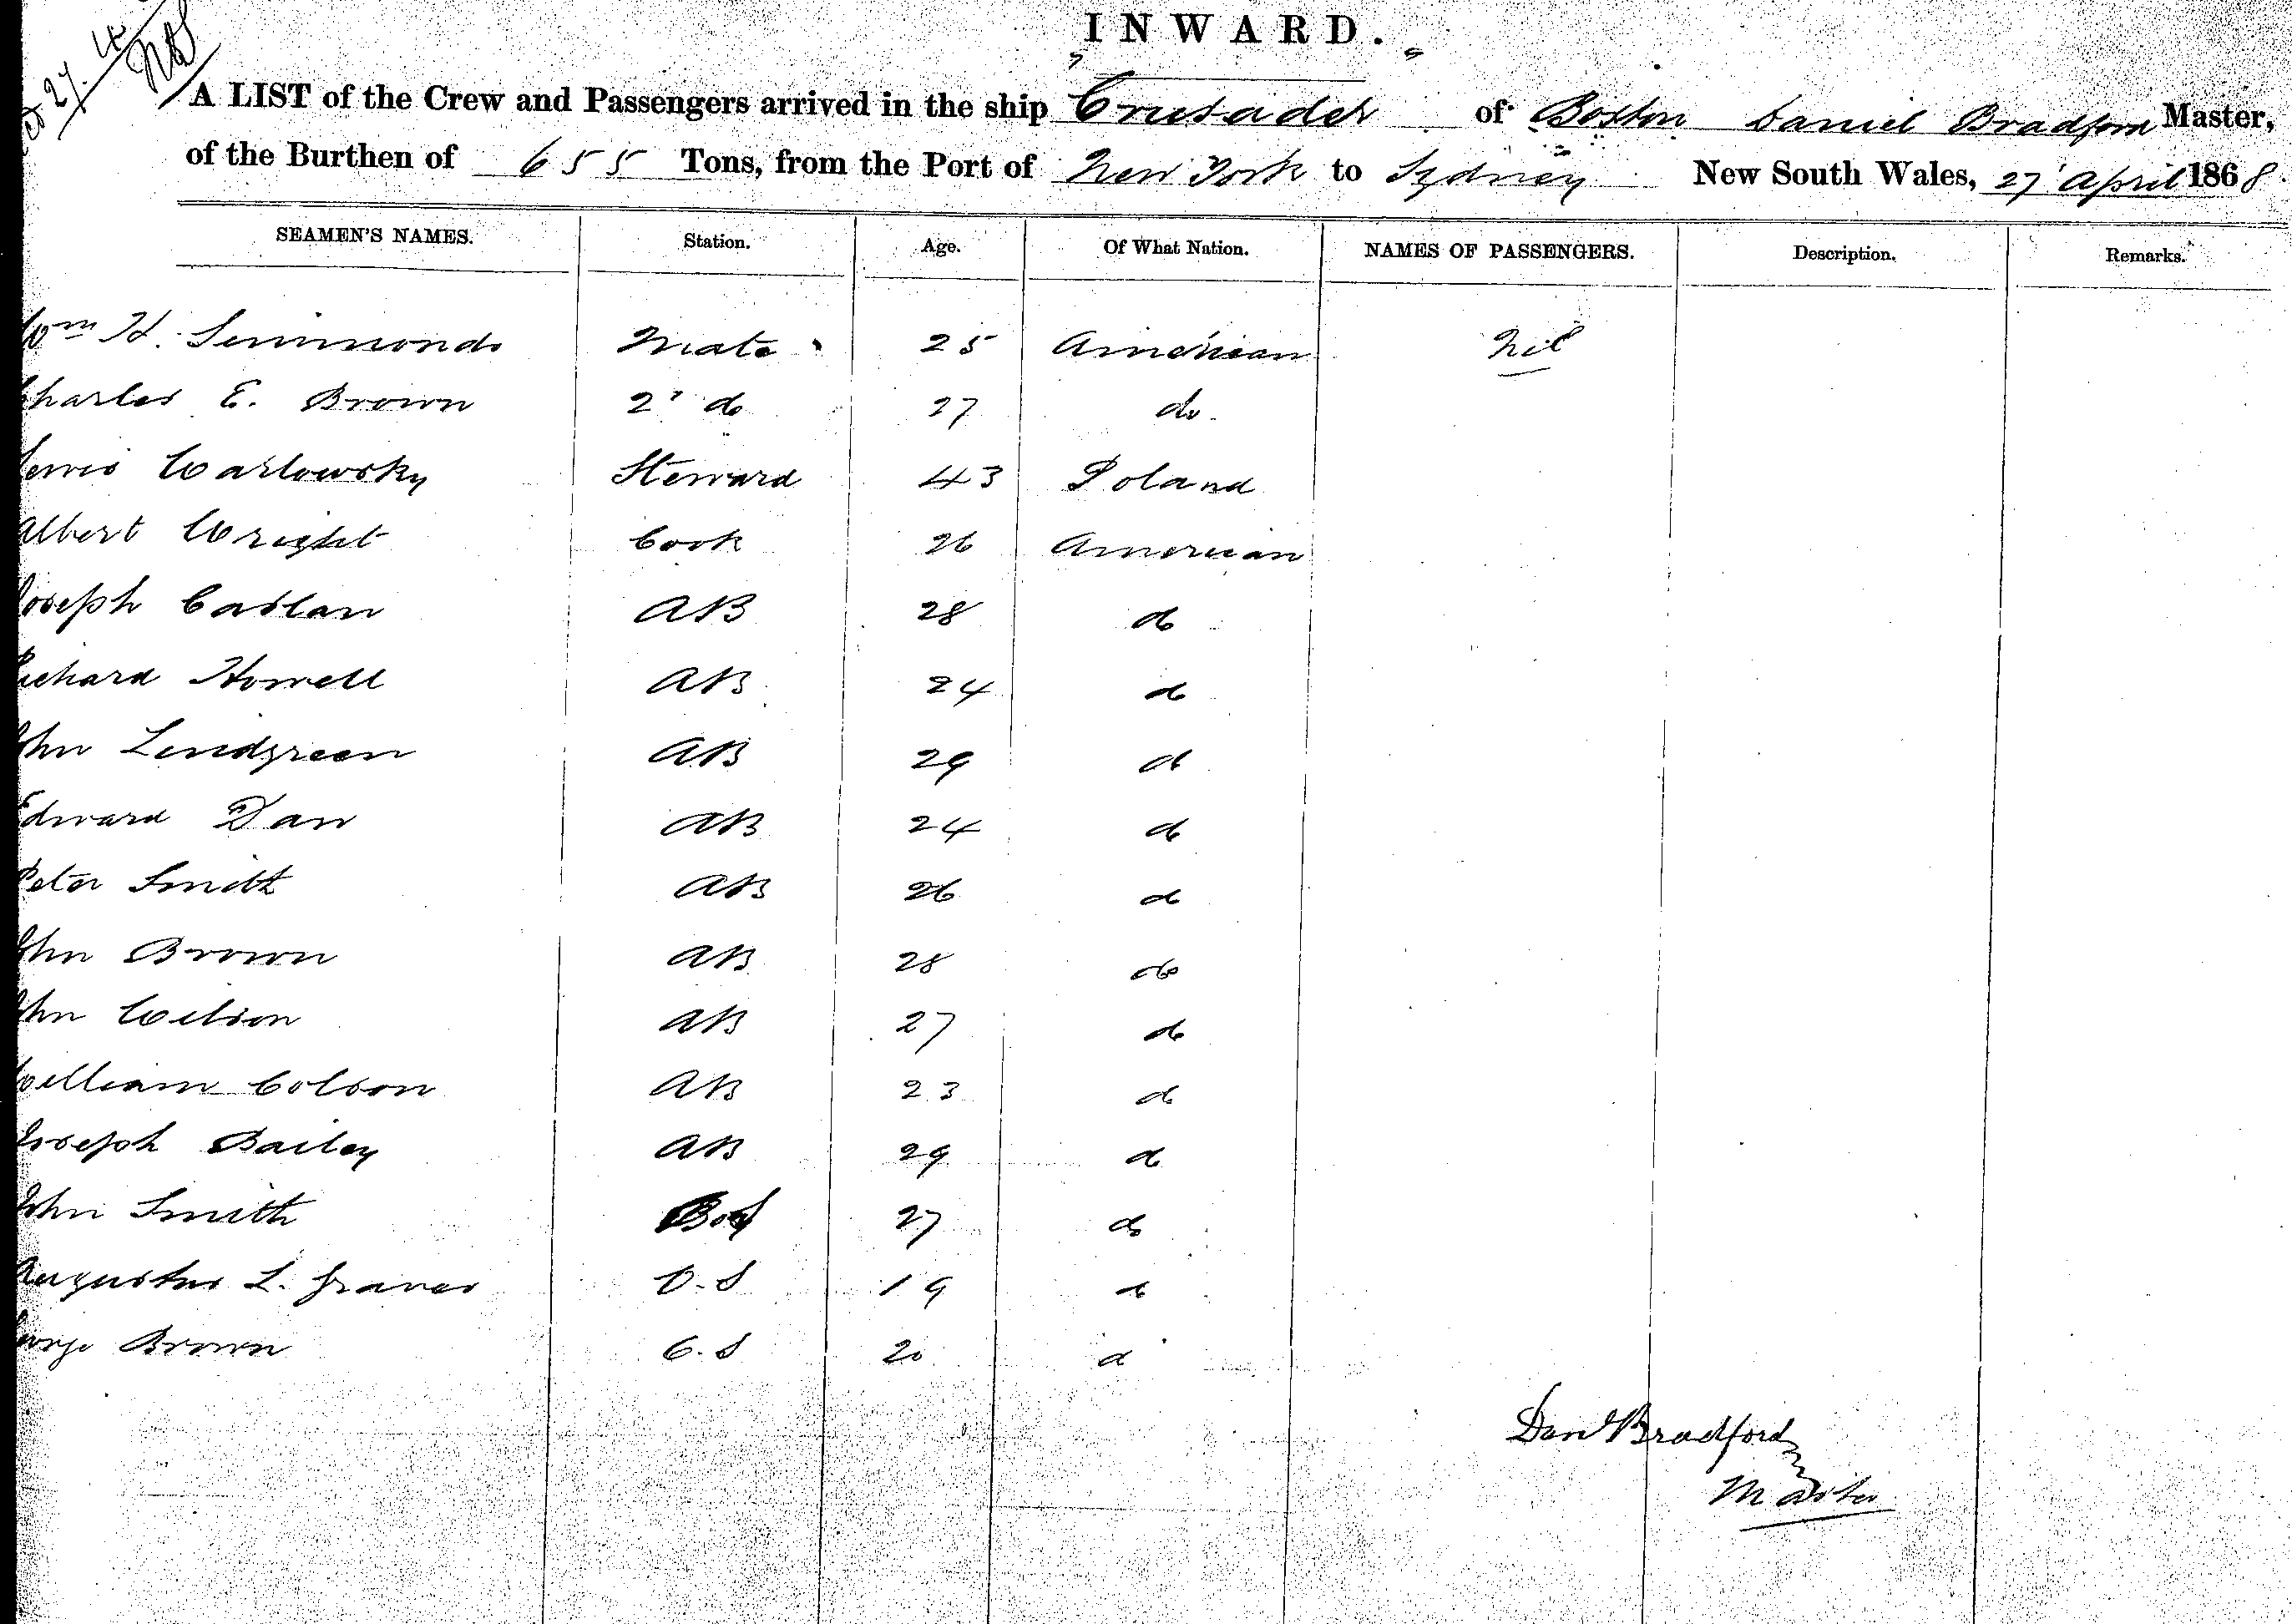 27.4
INWARD.
A LIST of the Crew and Passengers arrived in the ship Crusader of Boston Daniel Bradford Master,
of the Burthen of 655 Tons, from the Port of New York to Sydney New South Wales, 27 April 1868.
SEAMEN'S NAMES. Station. Age. Of What Nation. NAMES OF PASSENGERS. Description. Remarks.
Wm H. Simmonds Mate 25 American Nil
Charles E. Brown 2d do 27 do.
Lewis Warlowsky Steward 43 Poland
Albert Wright Cook 26 American
Joseph Caslan AB 28 do
Richard Howell AB 24 do
John Lindgreen AB 29 do
Edward Dan AB 24 do
Peter Smith AB 26 do
John Brown AB 28 do
John Wilson AB 27 do
William Colson AB 23 do
Joseph Bailey AB 29 do
John Smith 27 do
Augustus L. Graves O.S 19 do
George Brown O.S 20 do
Danl Bradford
Master